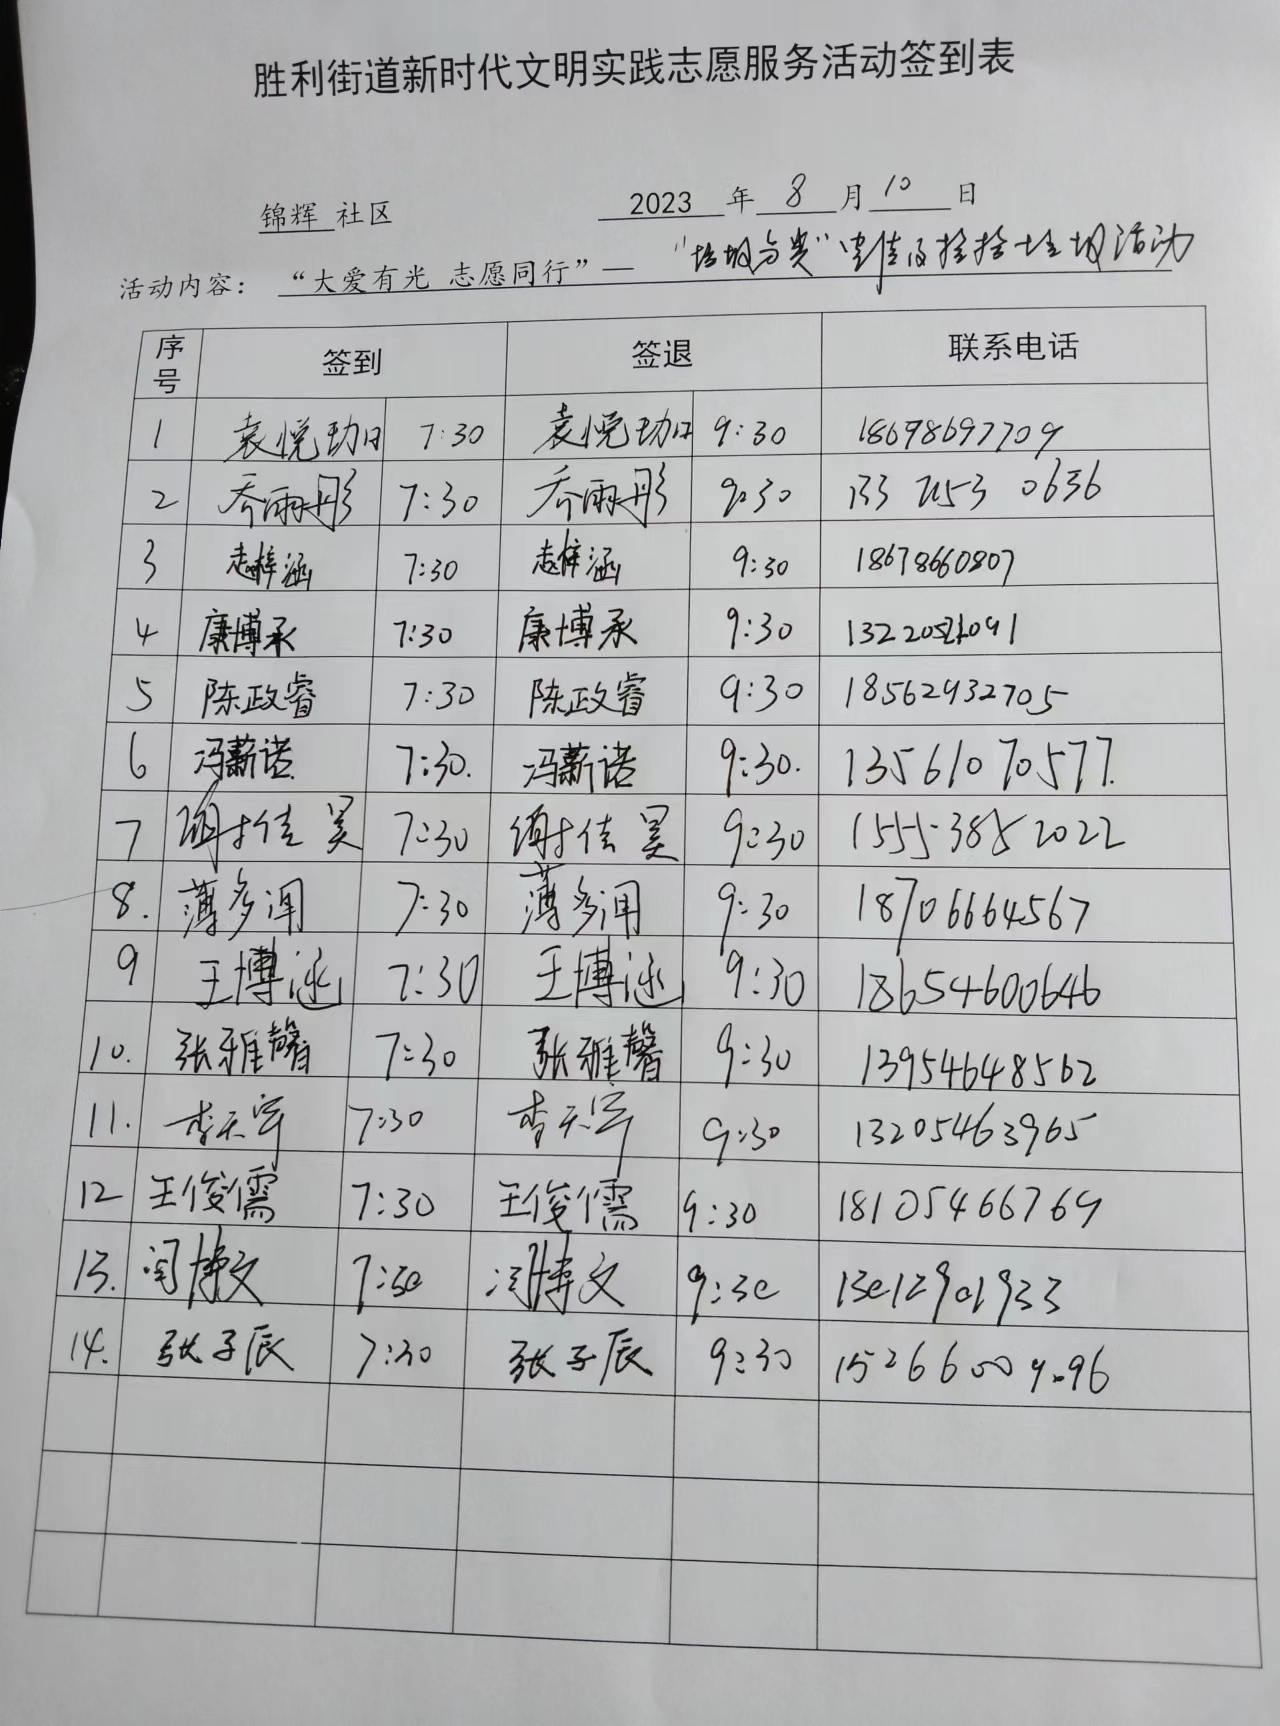 胜利街道新时代文明实践志愿服务活动签到表
锦辉 社区 2023 年 8 月 10 日
活动内容： “大爱有光 志愿同行”— “垃圾分类”宣传及捡拾垃圾活动
序号 签到 签退 联系电话
1 袁悦 7:30 袁悦 9:30 18698697709
2 乔雨彤 7:30 乔雨彤 9:30 0636
3 赵梓涵 7:30 赵梓涵 9:30 18678660807
4 康博承 7:30 康博承 9:30
5 陈政睿 7:30 陈政睿 9:30 18562932705
6 冯薪诺 7:30. 冯薪诺 9:30. 13561070577.
7 谢佳昊 7:30 谢佳昊 9:30 15553852022
8. 薄多闻 7:30 薄多闻 9:30 18706664567
9 王博涵 7:30 王博涵 9:30 18654600646
10. 张雅馨 7:30 张雅馨 9:30 13954648562
11. 李天宇 7:30 李天宇 9:30 13205463965
12 王俊儒 7:30 王俊儒 9:30 18105466769
13. 闫博文 7:30 闫博文 9:30 13012901933
14. 张子辰 7:30 张子辰 9:30